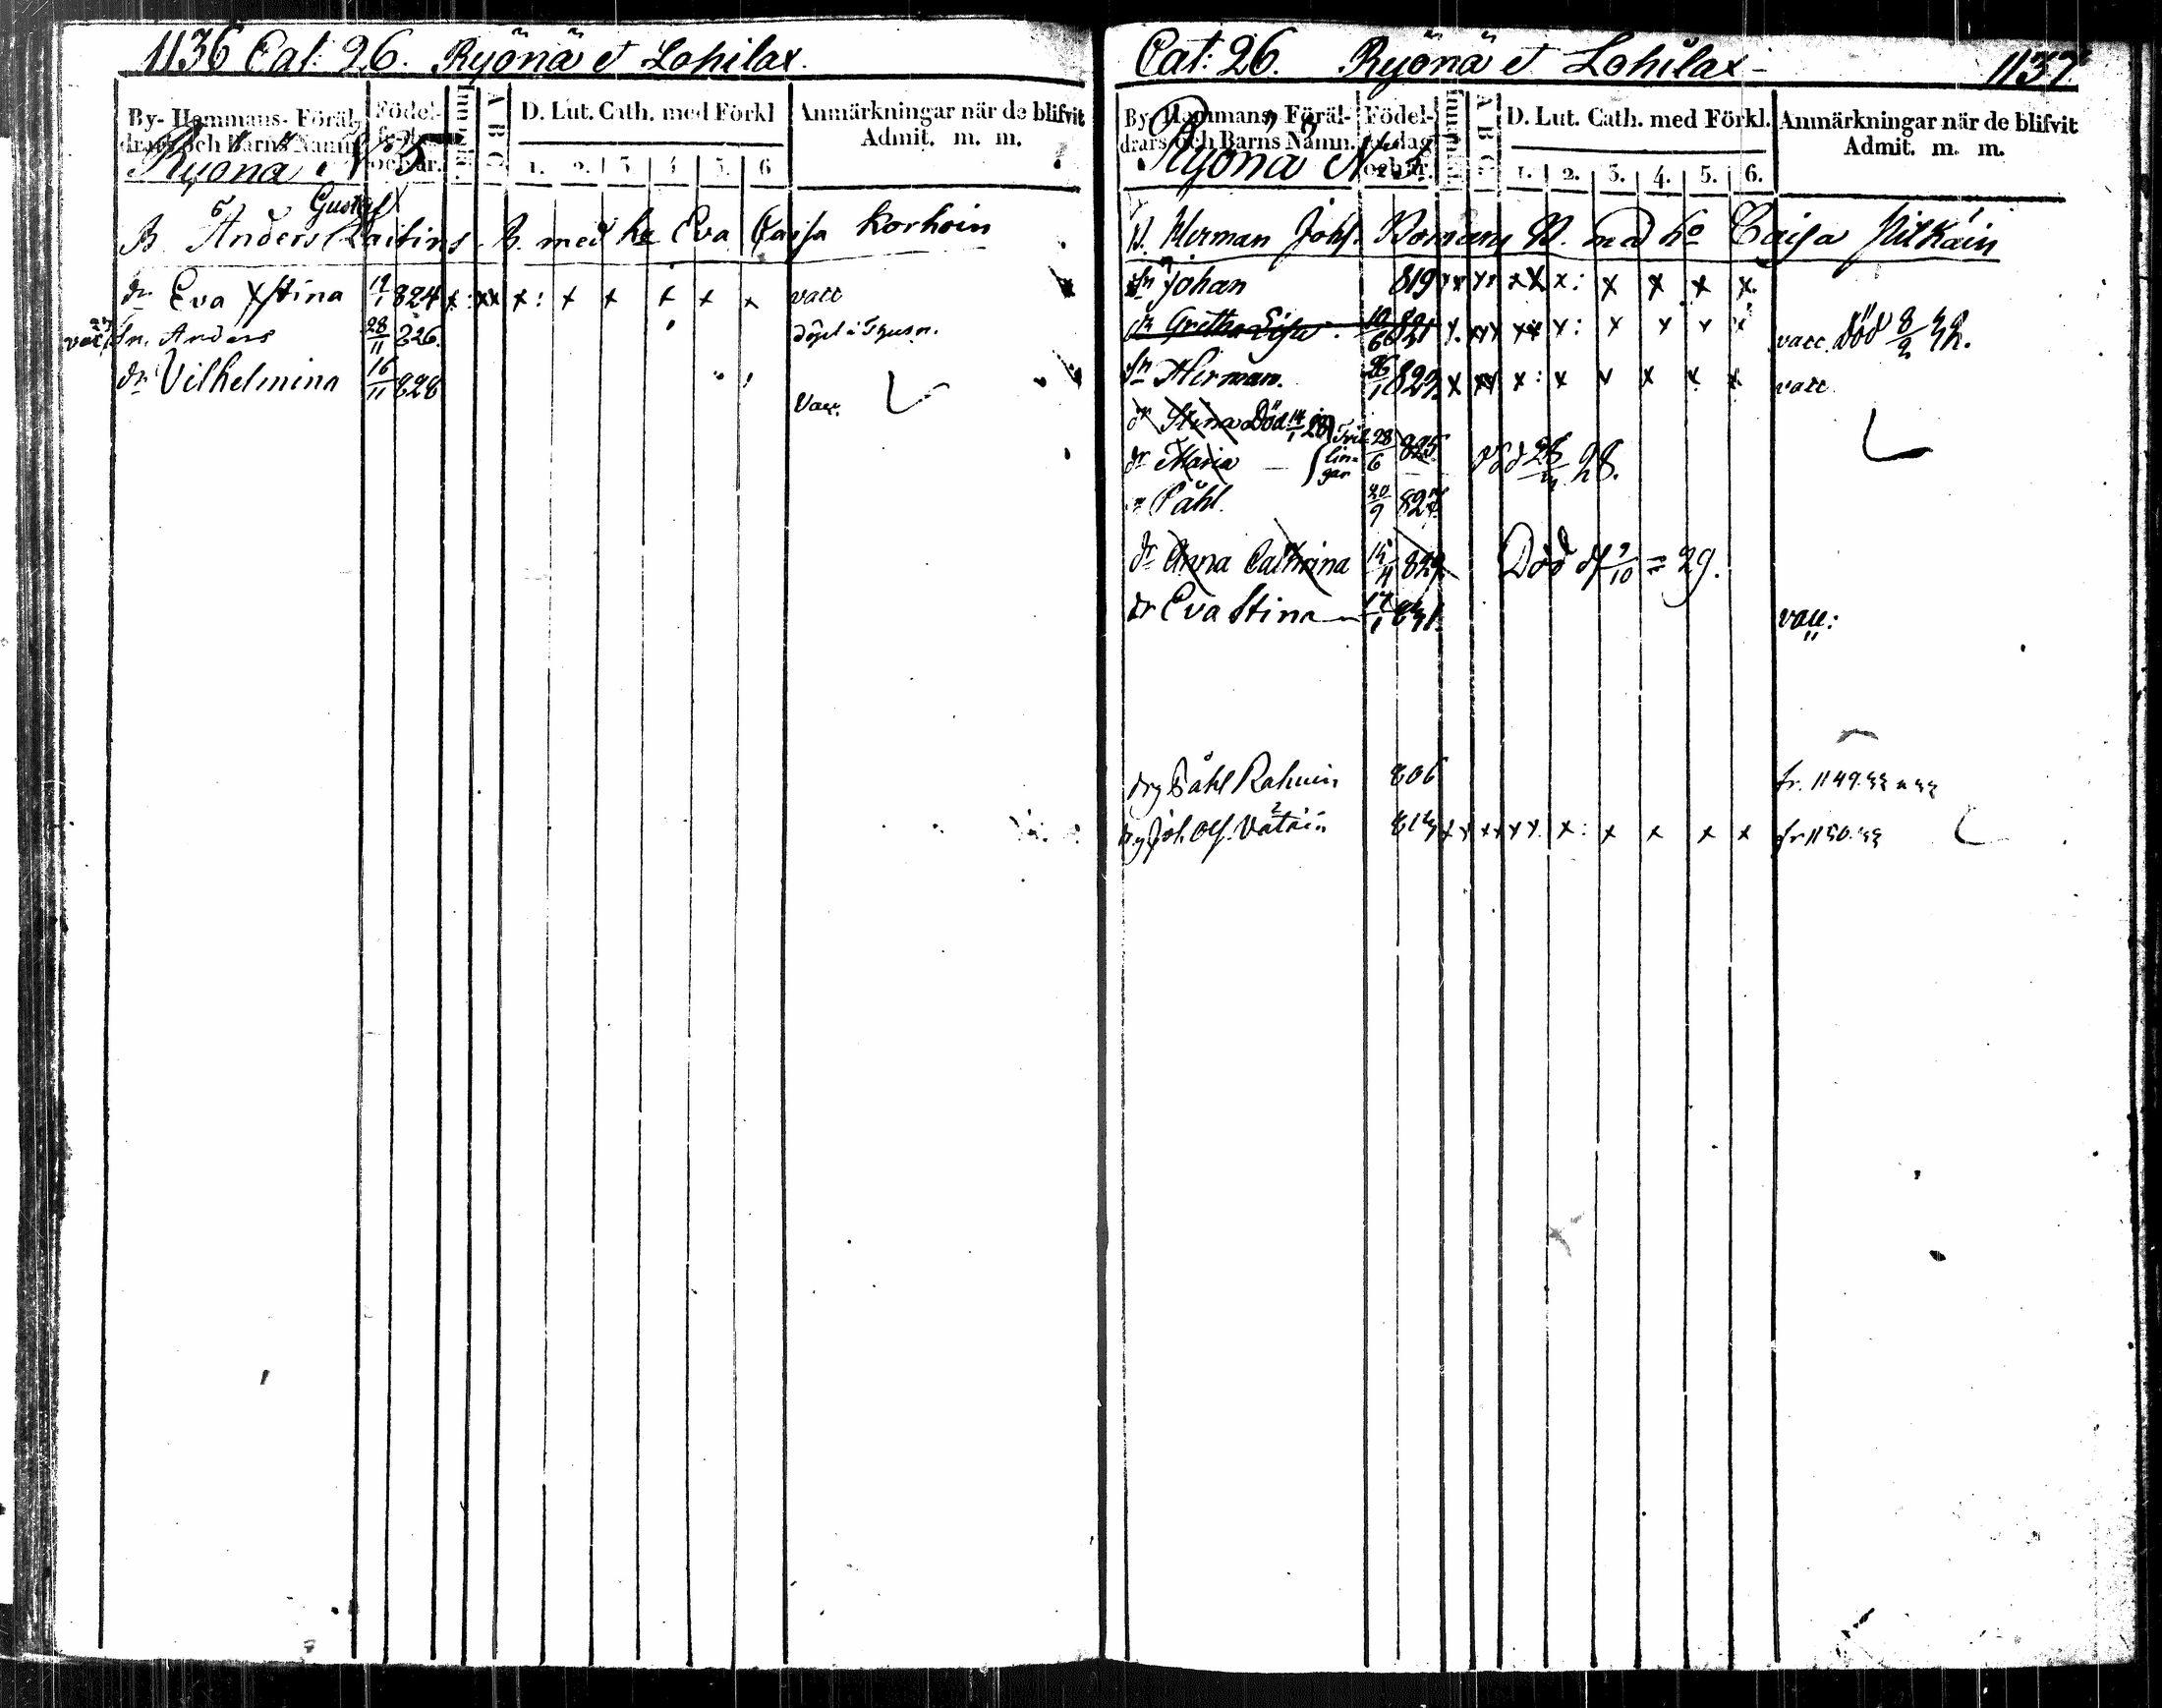 1136 Cat: 26. Ryönä et Lohilax.
By- Hemmans- Föräldrars och Barns Namn.
Födelsedag och år.
A B C
D. Lut. Cath. med Förkl
1. 2. 3. 4. 5. 6
Anmärkningar när de blifvit Admit. m. m.
Ryönä N 5
Gustaf
B Anders Laitins B. med ho Eva Caisa Korhoin
dr Eva Stina 19/1 824 x : xx x : x x x x x vacc
vacc Sn. Anders 28/11 826.
dr Vilhelmina 16/11 828 Vacc.
Cat: 26. Ryönä et Lohilax 1137.
By- Hemmans- Föräldrars och Barns Namn.
Födelsedag och år.
A B C
D. Lut. Cath. med Förkl.
1. 2. 3. 4. 5. 6.
Anmärkningar när de blifvit Admit. m. m.
Ryönä N
B. Herman Joh. Bomans B. med ho Caisa Pitkäin
Sn Johan 819 xx xx xx x: x x x x
dr Gretha Lisa 10/6 821 x. xx xx x: x x x x vacc. död 8/2
Sn Herman. 26/1 823 x xx x: x x x x x vacc
dr Stina Död 14/1 28 Tvil- 28/6 825.
dr Maria lin-gar död 28.
Påhl. 20/9 827
dr Anna Cathrina 829 Död d 9/10 = 29.
dr Eva Stina 17/1 831. vacc:
drg Påhl Rahuin 806 fr. 1149.
drg Joh. Olof. Vatain 813 xx xx xx x: x x x x fr 1150.